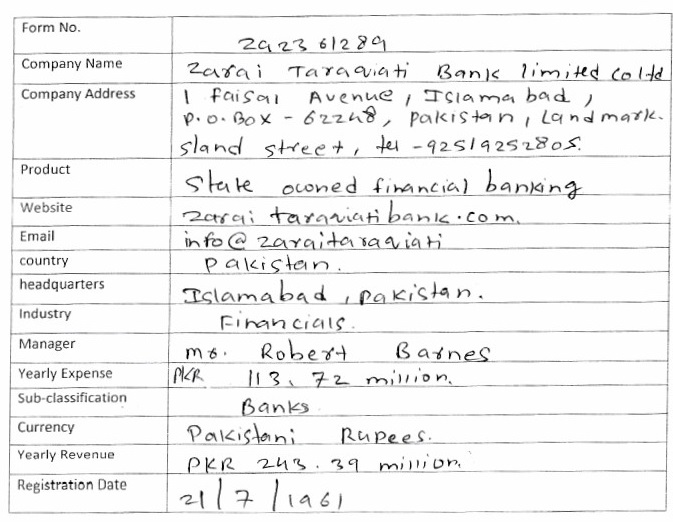 Form No. 2923 61289
Company Name Zarai Taraqiati Bank limited co ltd
Company Address 1 faisal Avenue, Islamabad,
P.O.BOX - 62248, pakistan, Landmark.
sland street, tel -92519252805.
Product State owned financial banking
Website zarai taraqiatibank.com.
Email info@zaraitaraqiati
country Pakistan.
headquarters Islamabad, pakistan.
Industry Financials.
Manager mr. Robert Barnes
Yearly Expense PKR 113.72 million.
Sub-classification Banks
Currency Pakistani Rupees.
Yearly Revenue PKR 243.39 million.
Registration Date 21/7/1961